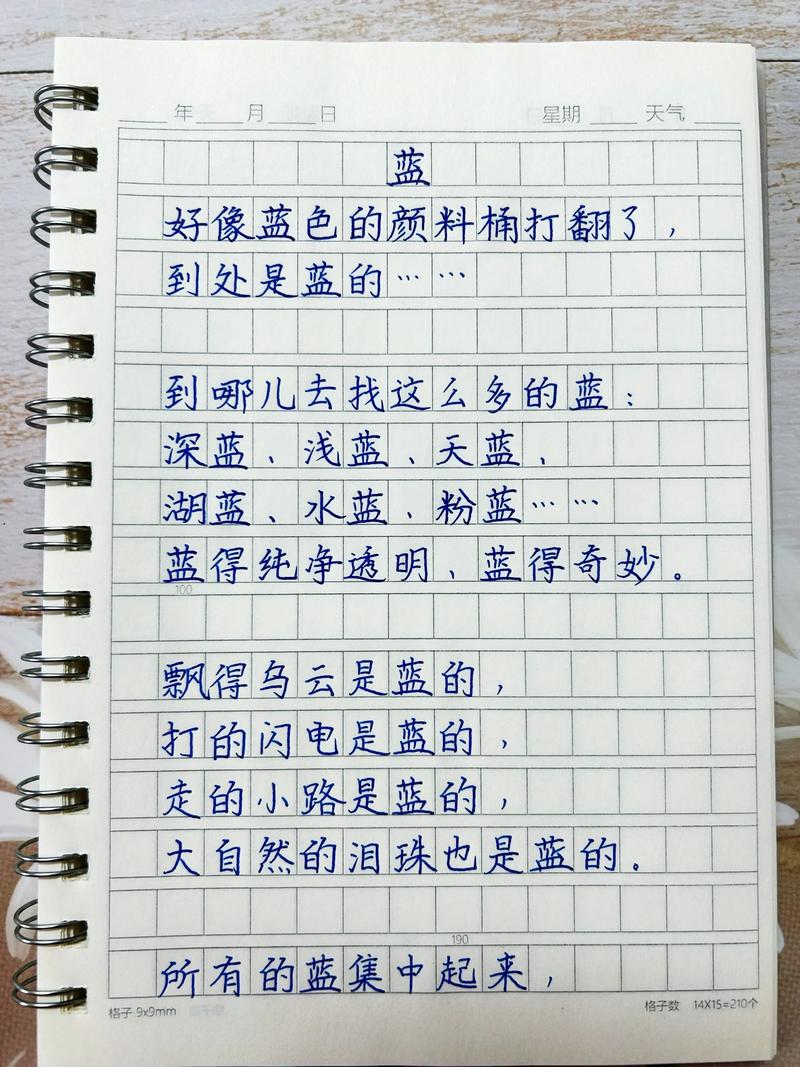 年 月 日 星期 天气
蓝
好像蓝色的颜料桶打翻了,
到处是蓝的……
到哪儿去找这么多的蓝:
深蓝、浅蓝、天蓝、
湖蓝、水蓝、粉蓝……
蓝得纯净透明、蓝得奇妙。
100
飘得乌云是蓝的,
打的闪电是蓝的,
走的小路是蓝的,
大自然的泪珠也是蓝的。
190
所有的蓝集中起来,
格子 9x9mm 格子数 14X15=210个